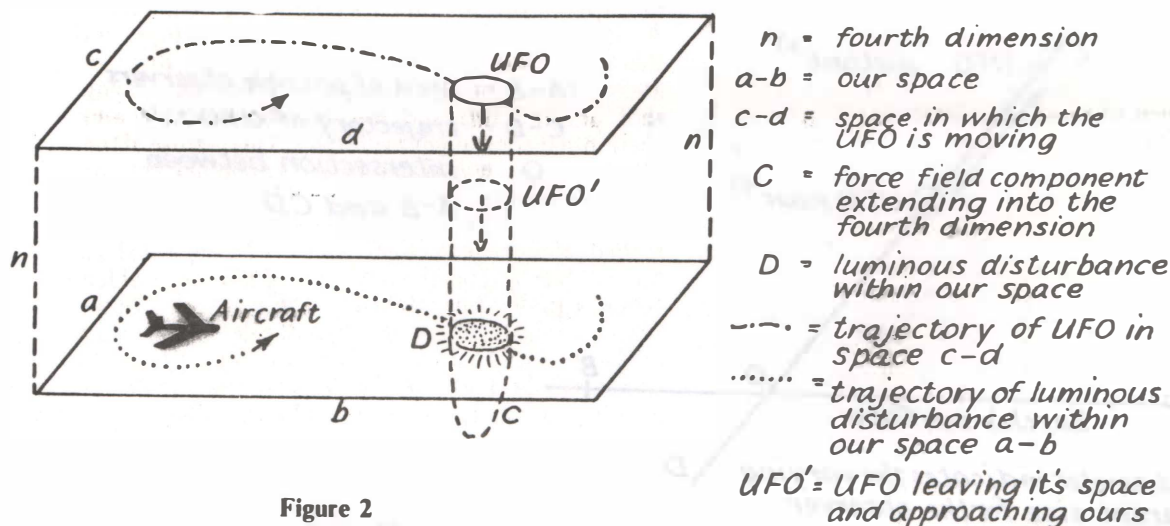 c
UFO
d
n
UFO'
n
a
Aircraft
D
b
C
n = fourth dimension
a-b = our space
c-d = space in which the
UFO is moving
C = force field component
extending into the
fourth dimension
D = luminous disturbance
within our space
= trajectory of UFO in
space c-d
= trajectory of luminous
disturbance within
our space a-b
UFO' = UFO leaving it's space
and approaching ours
Figure 2